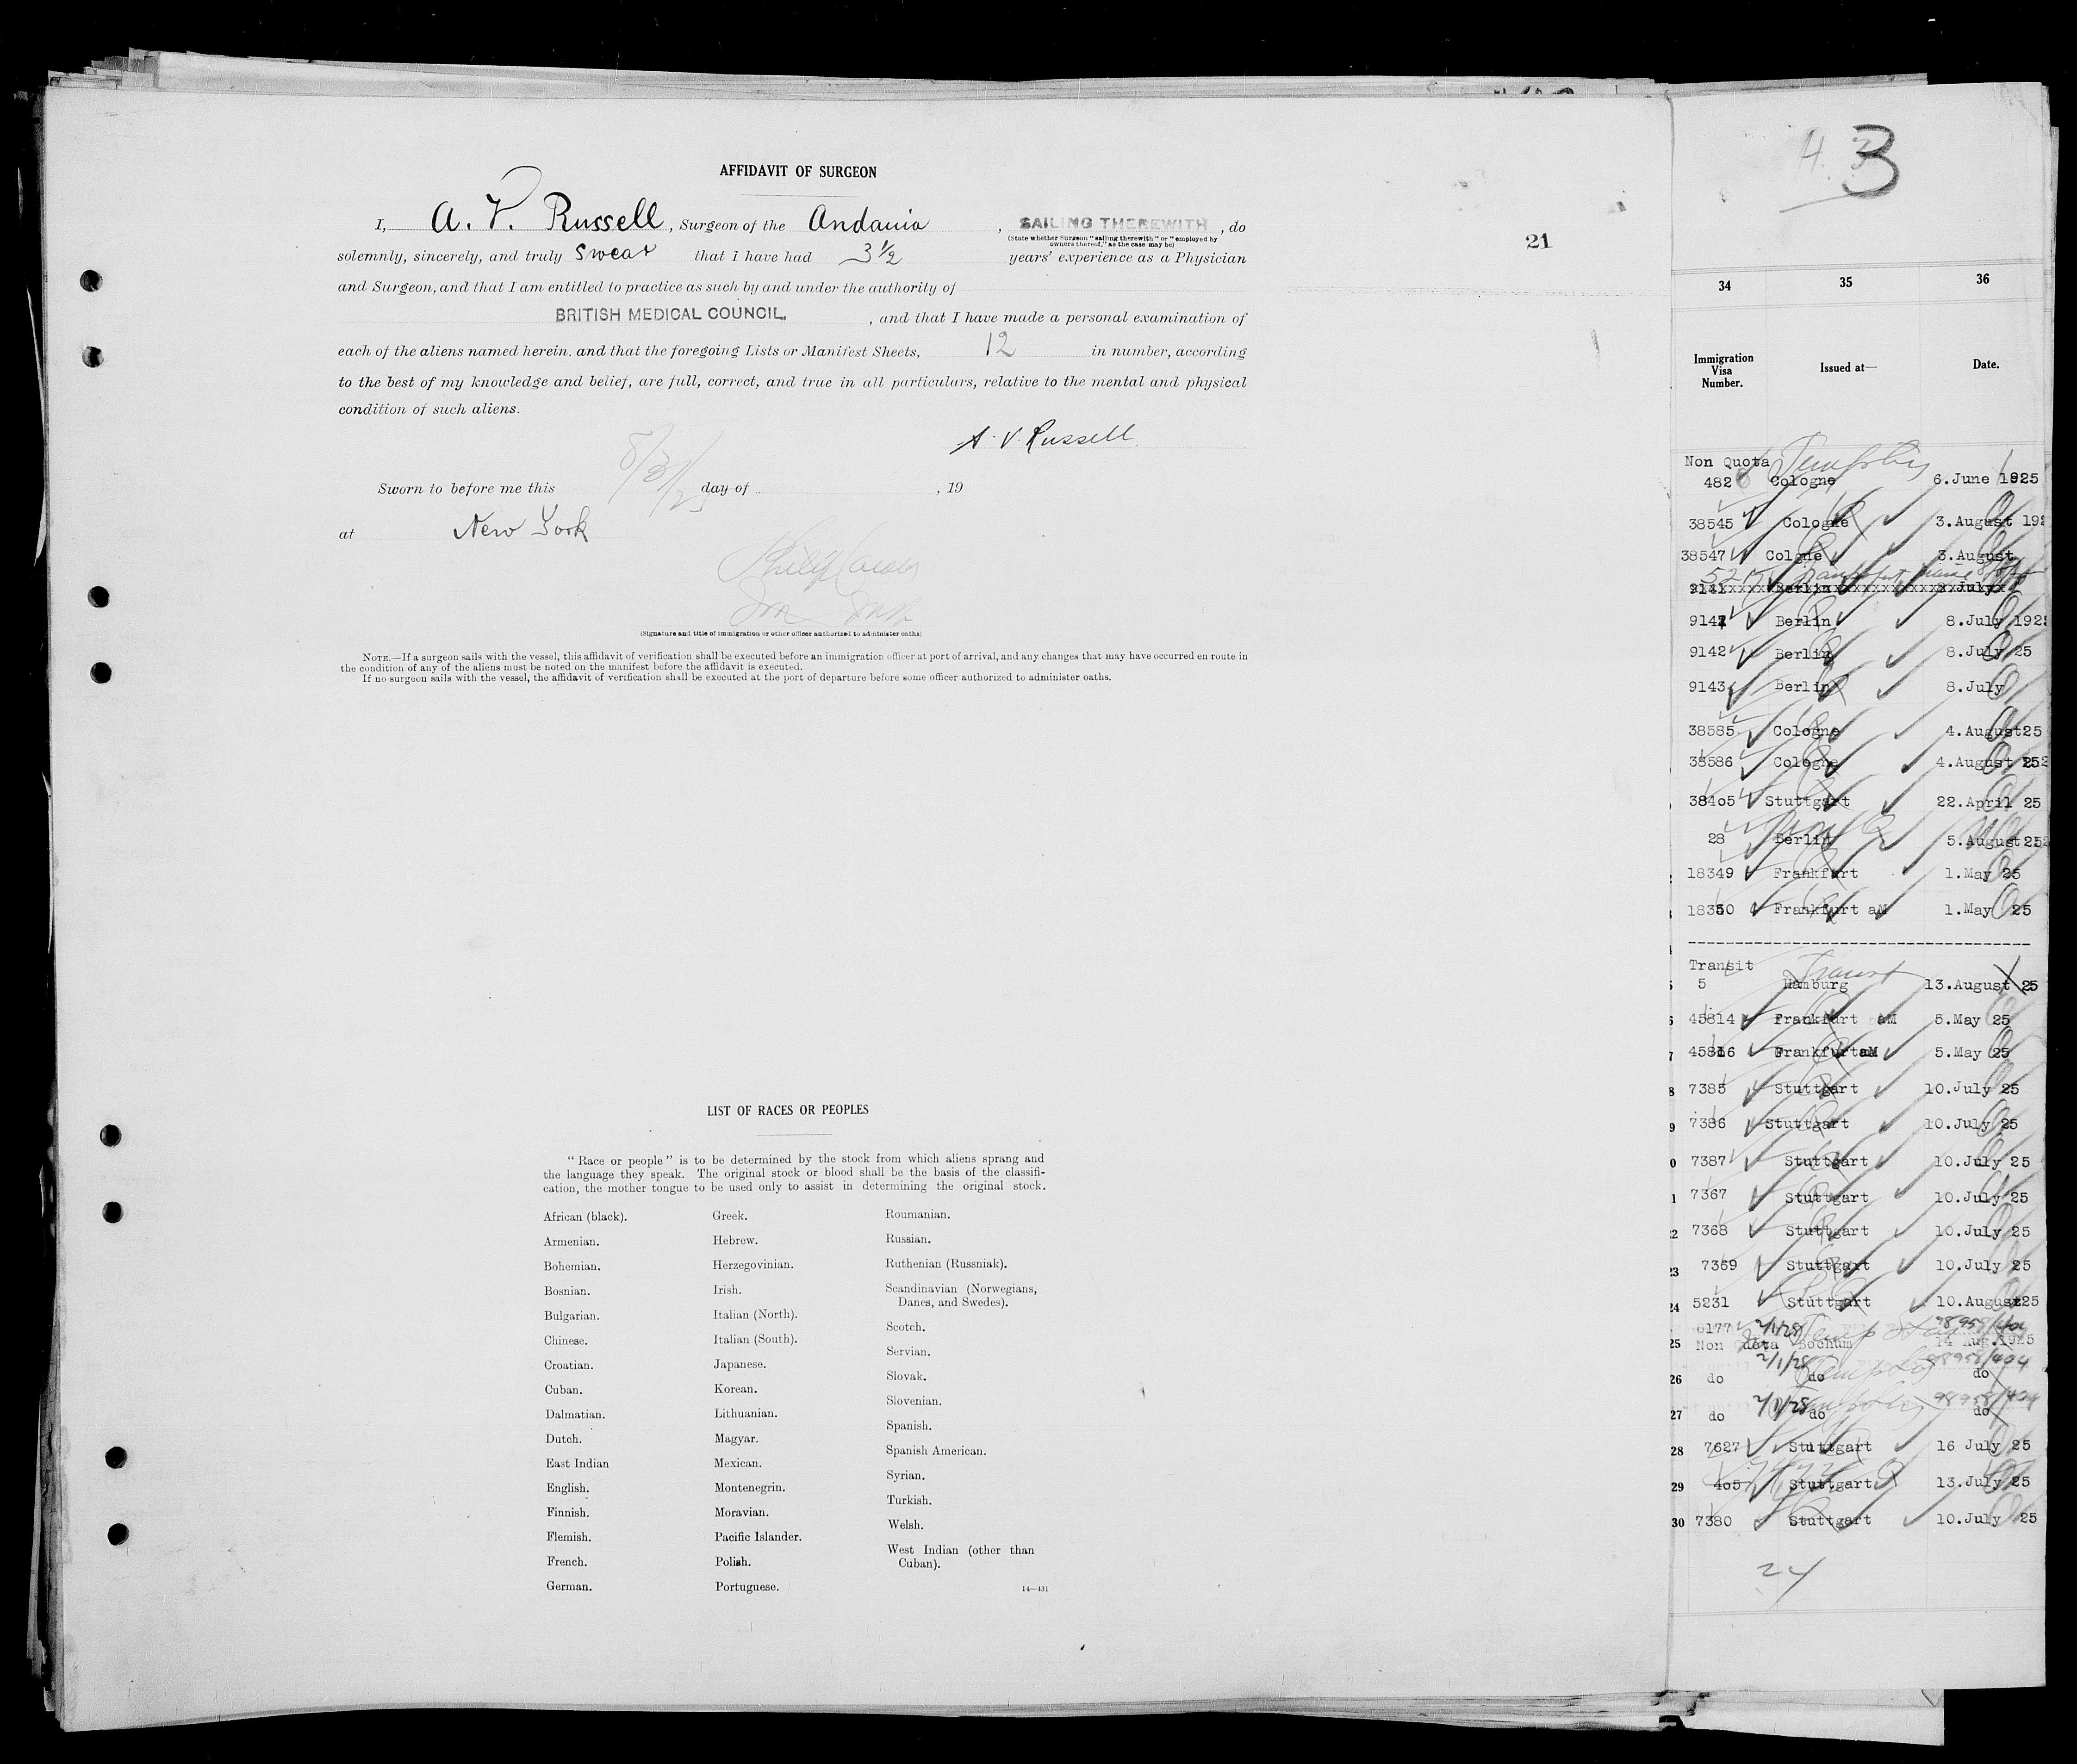 AFFIDAVIT OF SURGEON
I, A. V. Russell, Surgeon of the Andania, SAILING THEREWITH, do
(State whether Surgeon "sailing therewith" or "employed by
owners thereof," as the case may be)
solemnly, sincerely, and truly swear that I have had 3 1/2 years' experience as a Physician
and Surgeon, and that I am entitled to practice as such by and under the authority of
BRITISH MEDICAL COUNCIL, and that I have made a personal examination of
each of the aliens named herein, and that the foregoing Lists or Manifest Sheets, 12 in number, according
to the best of my knowledge and belief, are full, correct, and true in all particulars, relative to the mental and physical
condition of such aliens.
A. V. Russell.
Sworn to before me this 8/31/25 day of , 19
at New York
(Signature and title of immigration or other officer authorized to administer oaths)
NOTE.—If a surgeon sails with the vessel, this affidavit of verification shall be executed before an immigration officer at port of arrival, and any changes that may have occurred en route in
the condition of any of the aliens must be noted on the manifest before the affidavit is executed.
If no surgeon sails with the vessel, the affidavit of verification shall be executed at the port of departure before some officer authorized to administer oaths.
21
LIST OF RACES OR PEOPLES
"Race or people" is to be determined by the stock from which aliens sprang and
the language they speak. The original stock or blood shall be the basis of the classifi-
cation, the mother tongue to be used only to assist in determining the original stock.
African (black).
Armenian.
Bohemian.
Bosnian.
Bulgarian.
Chinese.
Croatian.
Cuban.
Dalmatian.
Dutch.
East Indian
English.
Finnish.
Flemish.
French.
German.
Greek.
Hebrew.
Herzegovinian.
Irish.
Italian (North).
Italian (South).
Japanese.
Korean.
Lithuanian.
Magyar.
Mexican.
Montenegrin.
Moravian.
Pacific Islander.
Polish.
Portuguese.
Roumanian.
Russian.
Ruthenian (Russniak).
Scandinavian (Norwegians,
Danes, and Swedes).
Scotch.
Servian.
Slovak.
Slovenian.
Spanish.
Spanish American.
Syrian.
Turkish.
Welsh.
West Indian (other than
Cuban).
14—431
3
34 35 36
Immigration
Visa
Number.
Issued at—
Date.
Non Quota
482 Cologne 6.June 1925
38545 Cologne 3.August 192
38547 Colgne 3.August
9141 Berlin 8.July
9142 Berlin 8.July 192
9142 Berlin 8.July 25
9143 Berlin 8.July
38585 Cologne 4.August25
38586 Cologne 4.August 25
38405 Stuttgart 22.April 25
28 Berlin 5.August25
18349 Frankfurt 1.May 25
18350 Frankfurt aM 1.May 25
Transit Transit
5 Hamburg 13.August 25
45814 Frankfurt aM 5.May 25
45816 Frankfurt aM 5.May 25
7385 Stuttgart 10.July 25
7386 Stuttgart 10.July 25
7387 Stuttgart 10.July 25
7367 Stuttgart 10.July 25
22 7368 Stuttgart 10.July 25
23 7369 Stuttgart 10.July 25
24 5231 Stuttgart 10.August25
25 Non Quota Bochum 14 Aug.1925
26 do 2/1/28 do do 98958/404
27 do 2/1/28 do do 98958/404
28 7627 Stuttgart 16 July 25
29 405 Stuttgart 13.July 25
30 7380 Stuttgart 10.July 25
24